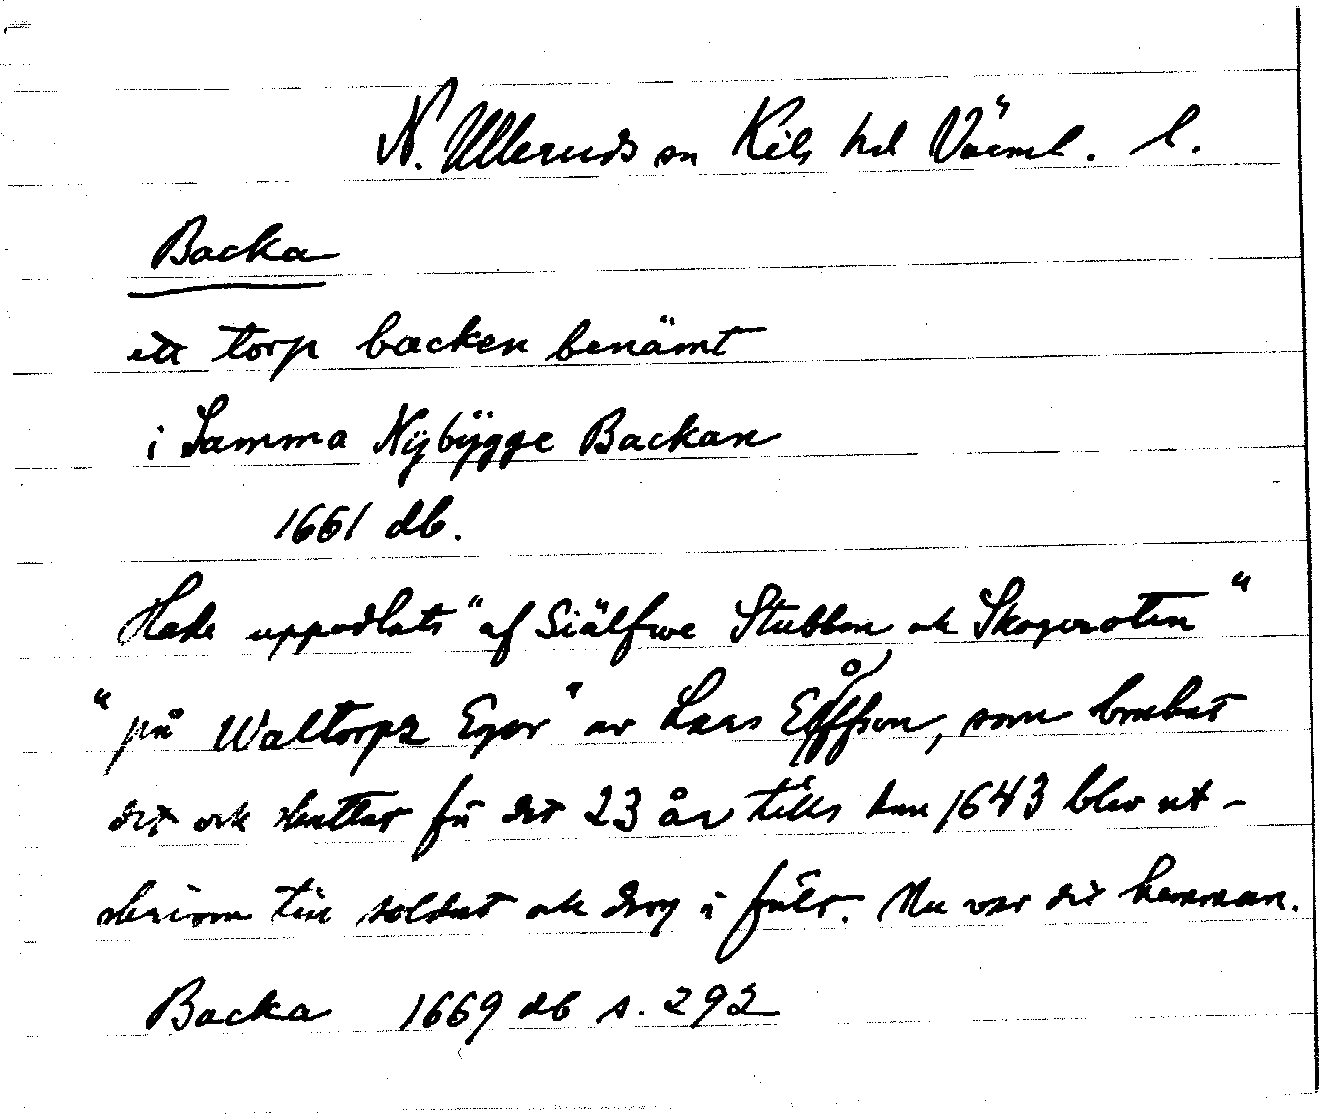 N. Ulleruds sn Kils hd Värml. l.
Backa
ett torp backen benämt
i Samma Nÿbÿgge Backan
1661 db.
Hade uppodlats "af Siälfwe Stubben ok Skogzroten"
"på Waltorpz Egor" av Lars Effson, som brukat
det ock skattat för det 23 år tills han 1643 blev ut-
skriven till soldat ock drog i fält. Nu var det hemman.
Backa 1669 db s. 292